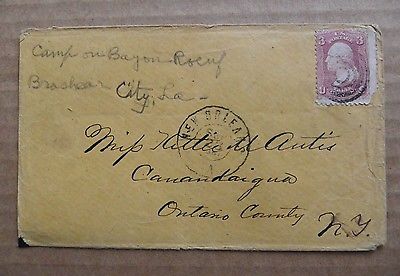 Camp on Bayou Boeuf
Brashear
City, La -
3 U.S. 3
NEW ORLEA
Miss Kittie M Antis
Canandaigua
Ontario County N.Y.